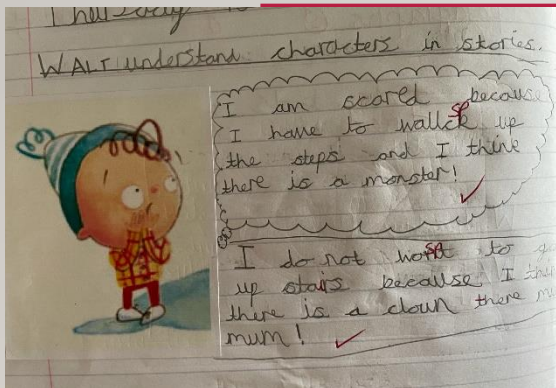 WALT understand characters in stories.
I am scared because
I have to wallck up
sp
the steps and I think
there is a monster!
I do not wont to
sp
up stairs because I
there is a clown there
mum!